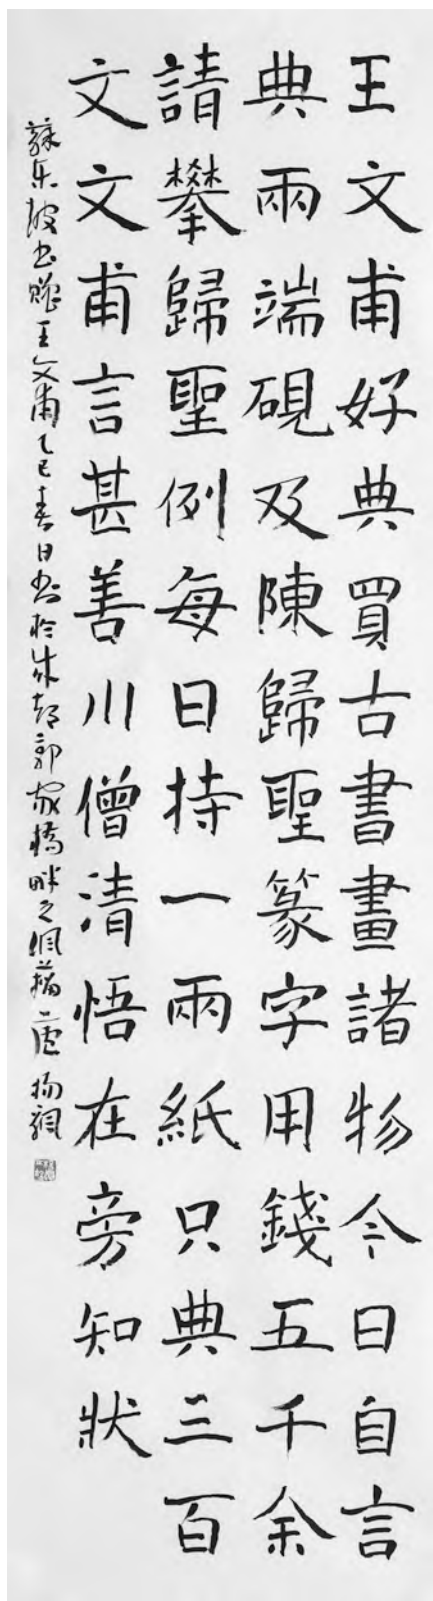 王文甫好典買古書畫諸物今日自言
典兩端硯及陳歸聖篆字用錢五千余
請攀歸聖例每日持一兩紙只典三百
文文甫言甚善川僧清悟在旁知狀
蘇東坡書贈王文甫乙巳春日書於成都郭家橋畔之廬